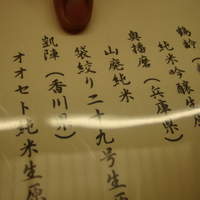 鶴齢
純米吟醸生原
奥播磨(兵庫県)
山廃純米
袋絞り二十九号生原
凱陣(香川県)
オオセト純米生原